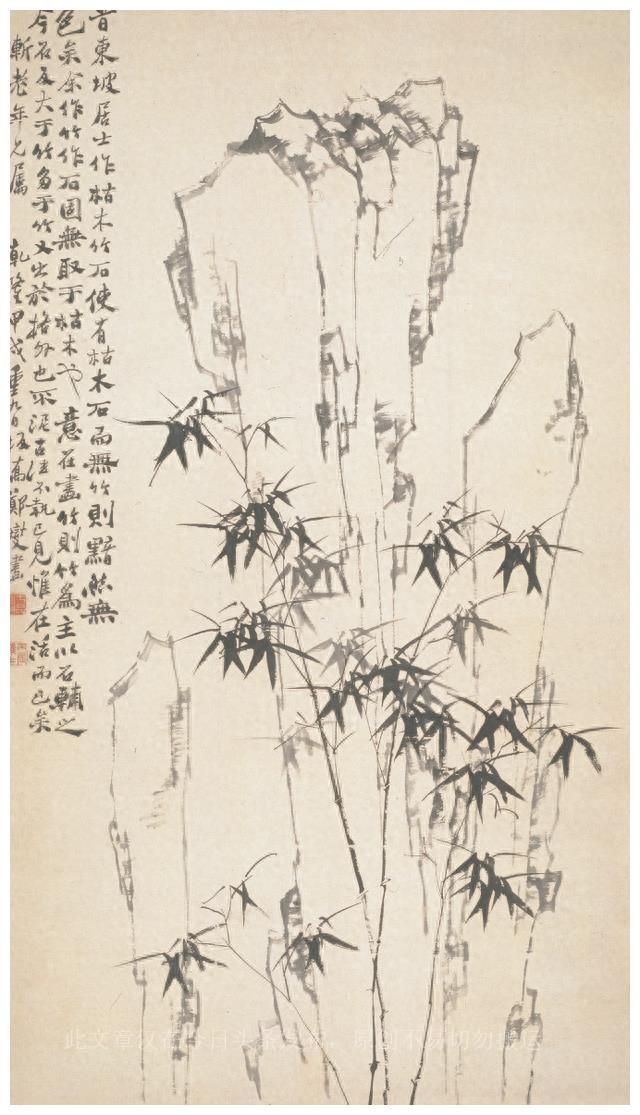 昔東坡居士作枯木竹石使有枯木石而無竹則黯然無
色矣余作竹作石固無取于枯木也意在畫竹則竹為主以石輔之
今石反大于竹多于竹又出於格外也不泥古法不執己見惟在活而已矣
老年兄属 乾隆甲戌重九日板橋鄭燮畫
此文章 今日头条发布，原创不易切勿搬运